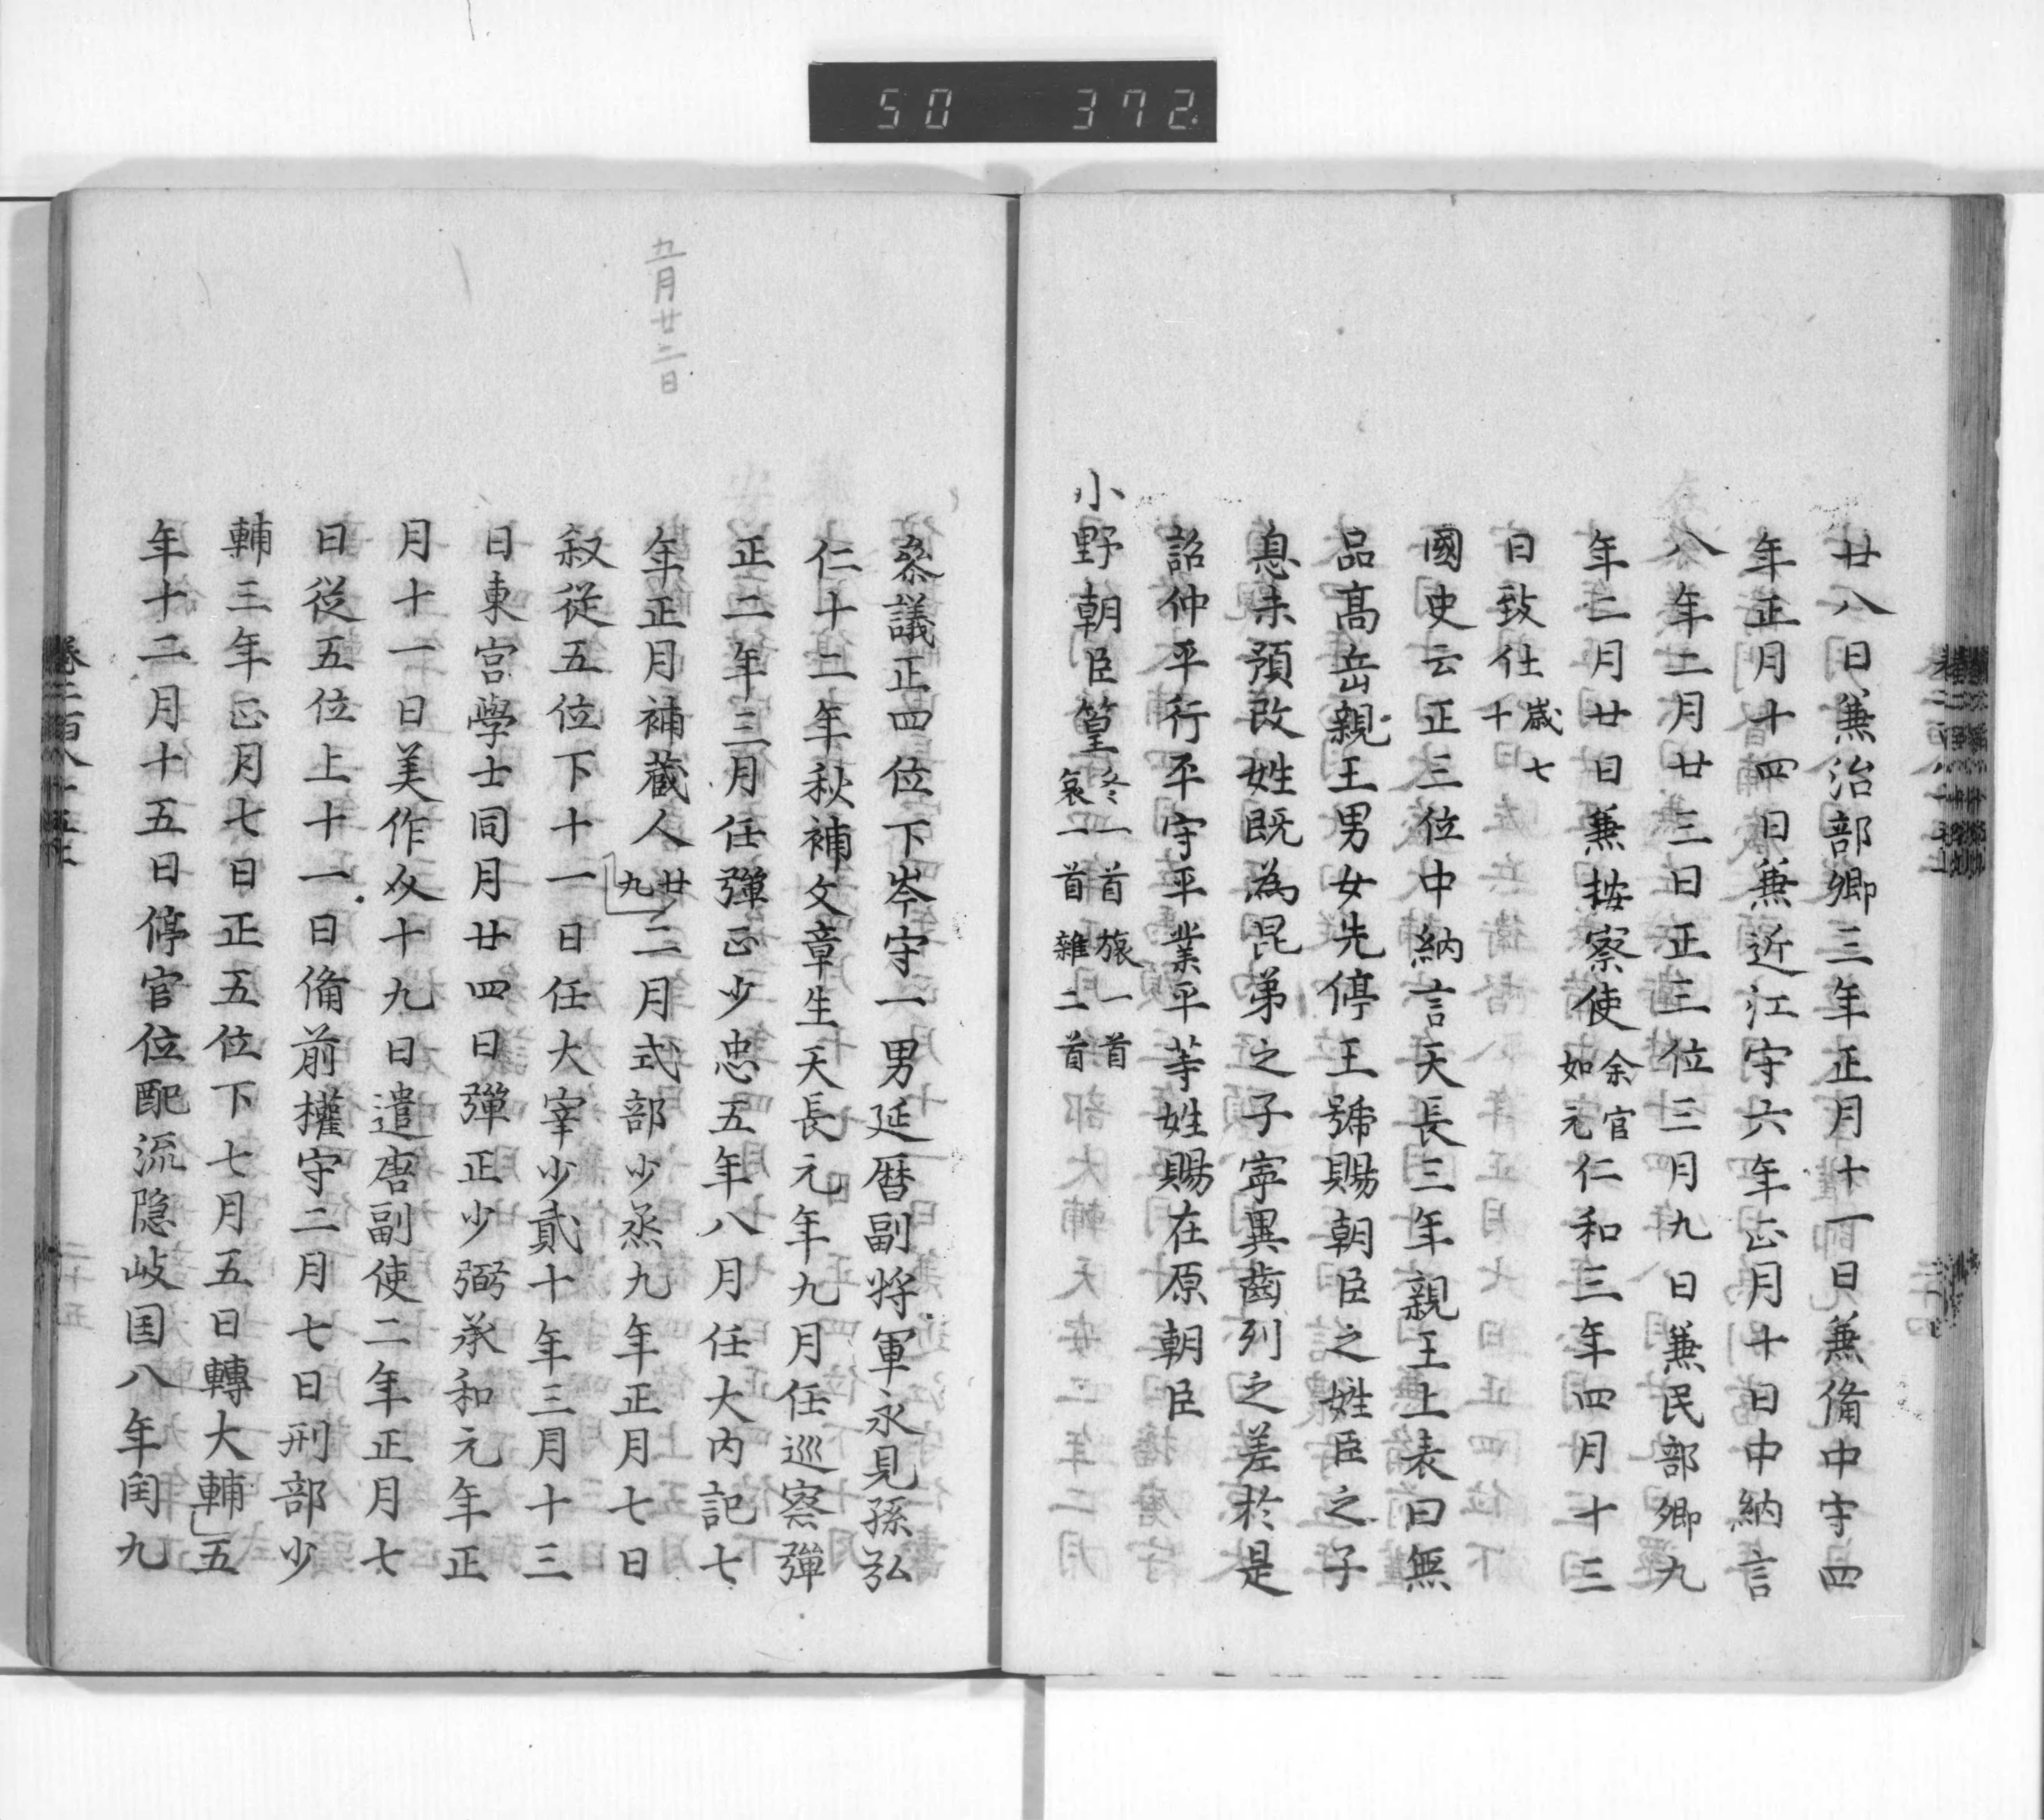 50 372
廿八日兼治部卿三年正月十一日兼備中守四
年正月十四日兼近江守六年正月十日中納言
八年二月廿三日正三位三月九日兼民部卿九
年二月廿日兼按察使余官如元仁和三年四月十三
日致仕歳七十
國史云正三位中納言天長三年親王上表曰無
品高岳親王男女先停王號賜朝臣之姓臣之子
息未預改姓既為昆弟之子寧異齒列之差於是
詔仲平行平守平業平等姓賜在原朝臣
小野朝臣篁冬一首旅一首哀一首雜二首
五月廿三日
叅議正四位下岑守一男延暦副将軍永見孫弘
仁十二年秋補文章生天長元年九月任巡察彈
正二年三月任彈正少忠五年八月任大内記七
年正月補蔵人廿九二月式部少烝九年正月七日
叙從五位下十一日任大宰少貳十年三月十三
日東宮學士同月廿四日彈正少弼承和元年正
月十一日美作介十九日遣唐副使二年正月七
日從五位上十一日備前權守二月七日刑部少
輔三年正月七日正五位下七月五日轉大輔五
年十二月十五日停官位配流隠岐国八年閏九